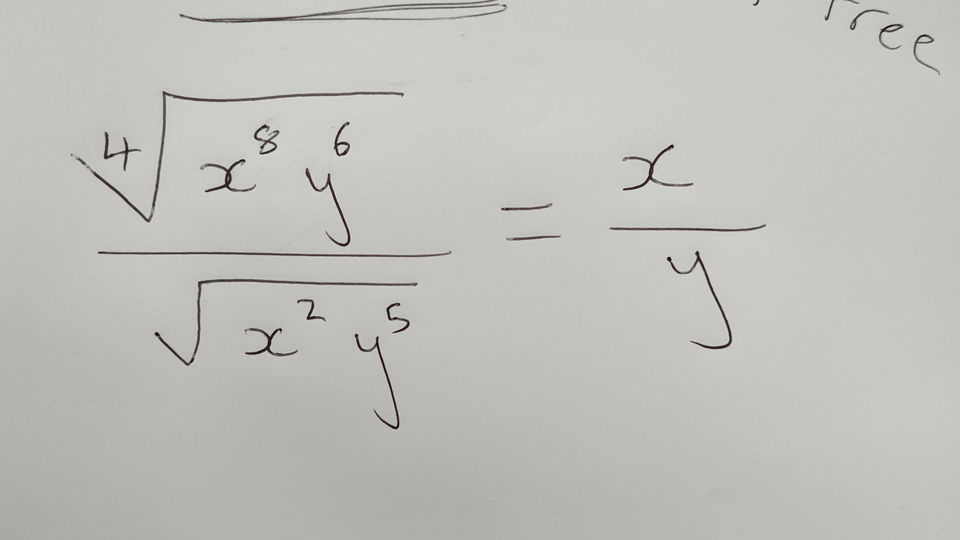 free
⁴√(x⁸ y⁶) / √(x² y⁵) = x / y